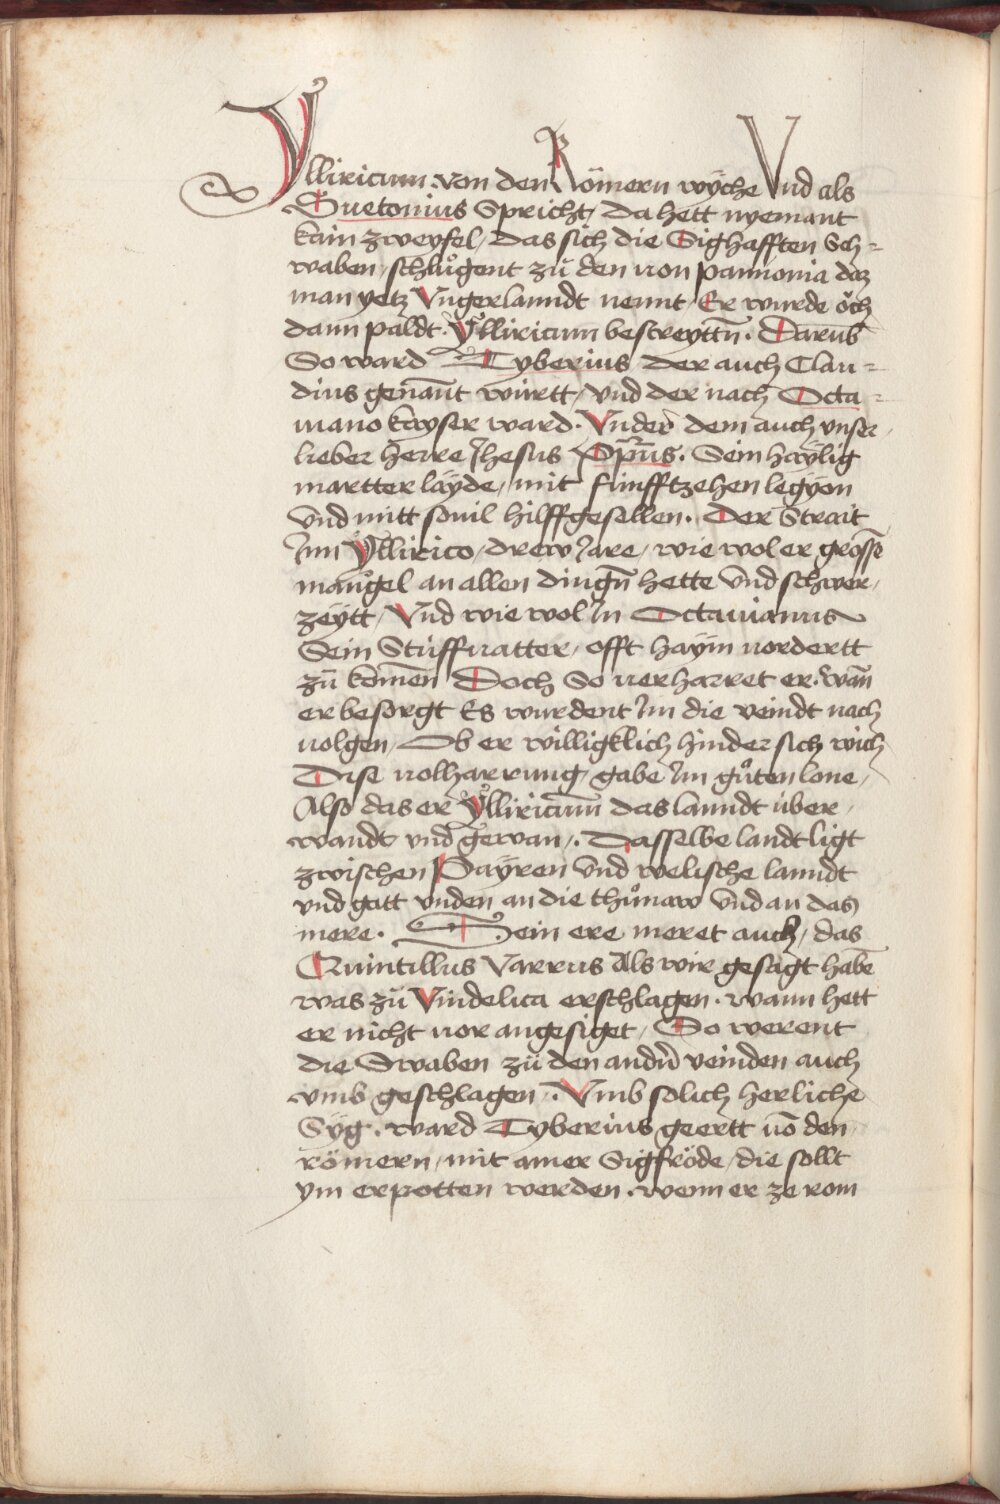 Ylliricum von den Römern wyche Vnd als
Suetonius Spricht / da hett nyemant
kain zweyfel / das sich die Sighafften Sch=
waben / schlůgent zů den von pannonia daz
man yetz Vngerlanndt nennt / Er wurde och
dann paldt · Ylliricum bestreyttn̄ · Darūb
So ward Tyberius der auch Clau=
dius genañt württ / vnd der nach Octa=
uiano kayser ward · Vnder dem auch vnser
lieber herre Jhesus Xpūs · Sein haylig
martter layde / mit fünfftzehen legyon
vnd mitt souil hilffgesellen · Der Strait
Jnn Yllirico / drew Jare / wie wol er grosse
mangel an allen dingn̄ hette vnd schwer
zeytt / Vnd wie wol Jn Octauianus
Sein Stüffuatter / offt haym vordertt
zů komen̄ Doch So verharret er · wañ
er besorgt Es wurdent Jm die veindt nach
volgen / Ob er willigklich hinder sich wich
Dise volharrung / gabe Jm gůten lone /
Also das er Ylliricum̄ das lanndt über
wandt vnd gewan / · Dasselbe landt ligt
zwischen Payren vnd welische lanndt
vnd gatt vnden an die thůnaw vnd an das
mere · Sein ere meret auch / das
Quintillus Varrus Als wir gesagt habē
was zů Vindelica erschlagen · wann hett
er nicht vor angesiget / So werent
die Swaben zů den andn̄ veinden auch
vmb geschlagen · Vmb solich herliche
Syg · ward Tyberius geertt vō den
römern / mit ainer Sigfröde / die sollt
ym erpotten werden · wenn er ze rom